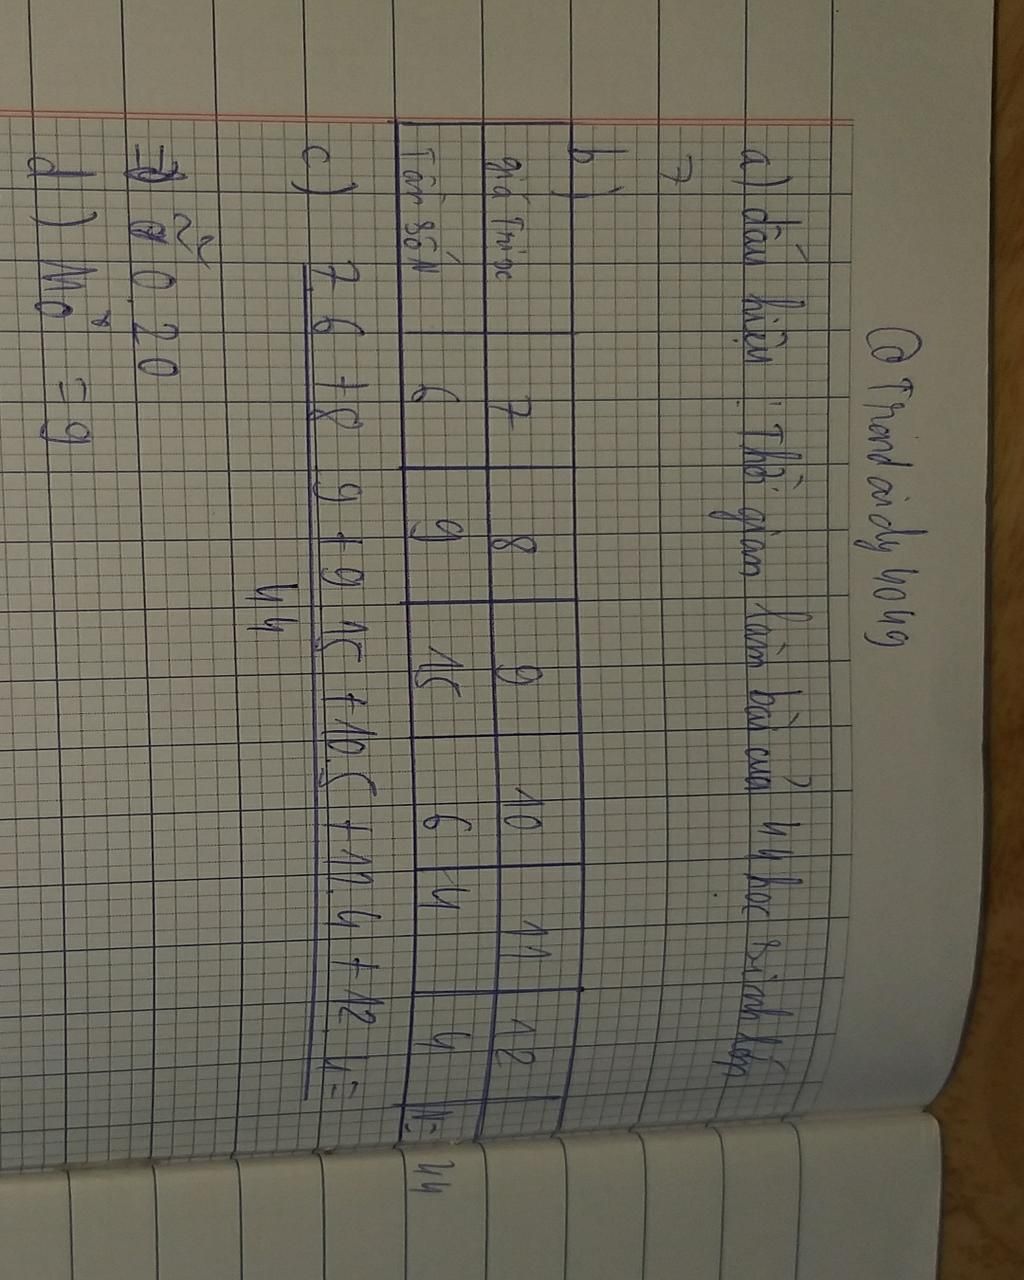 @Trandaidyhoug
a) dấu hiệu : Thời gian làm bài của 44 học sinh lớp
7
b)
giá Trị x 7 8 9 10 11 12
Tần số N 6 9 15 6 4 4 N= 44
c) 7.6 +8 9 +9 15 +10.5 +11.4 +12 4=
44
≈ 0 20
d) Mo = 9